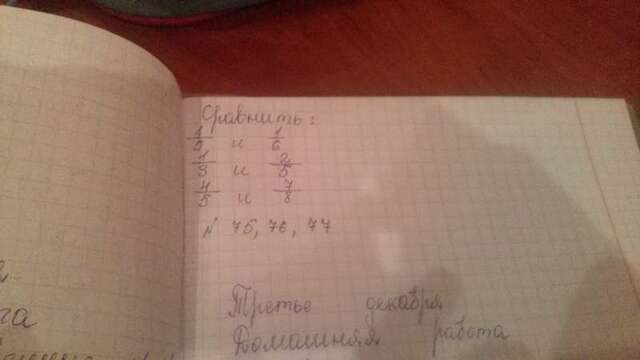 Сравнить:
1/5 и 1/6
1/3 и 2/5
4/5 и 7/8
№ 75, 76, 77
Третье декабря
Домашняя работа